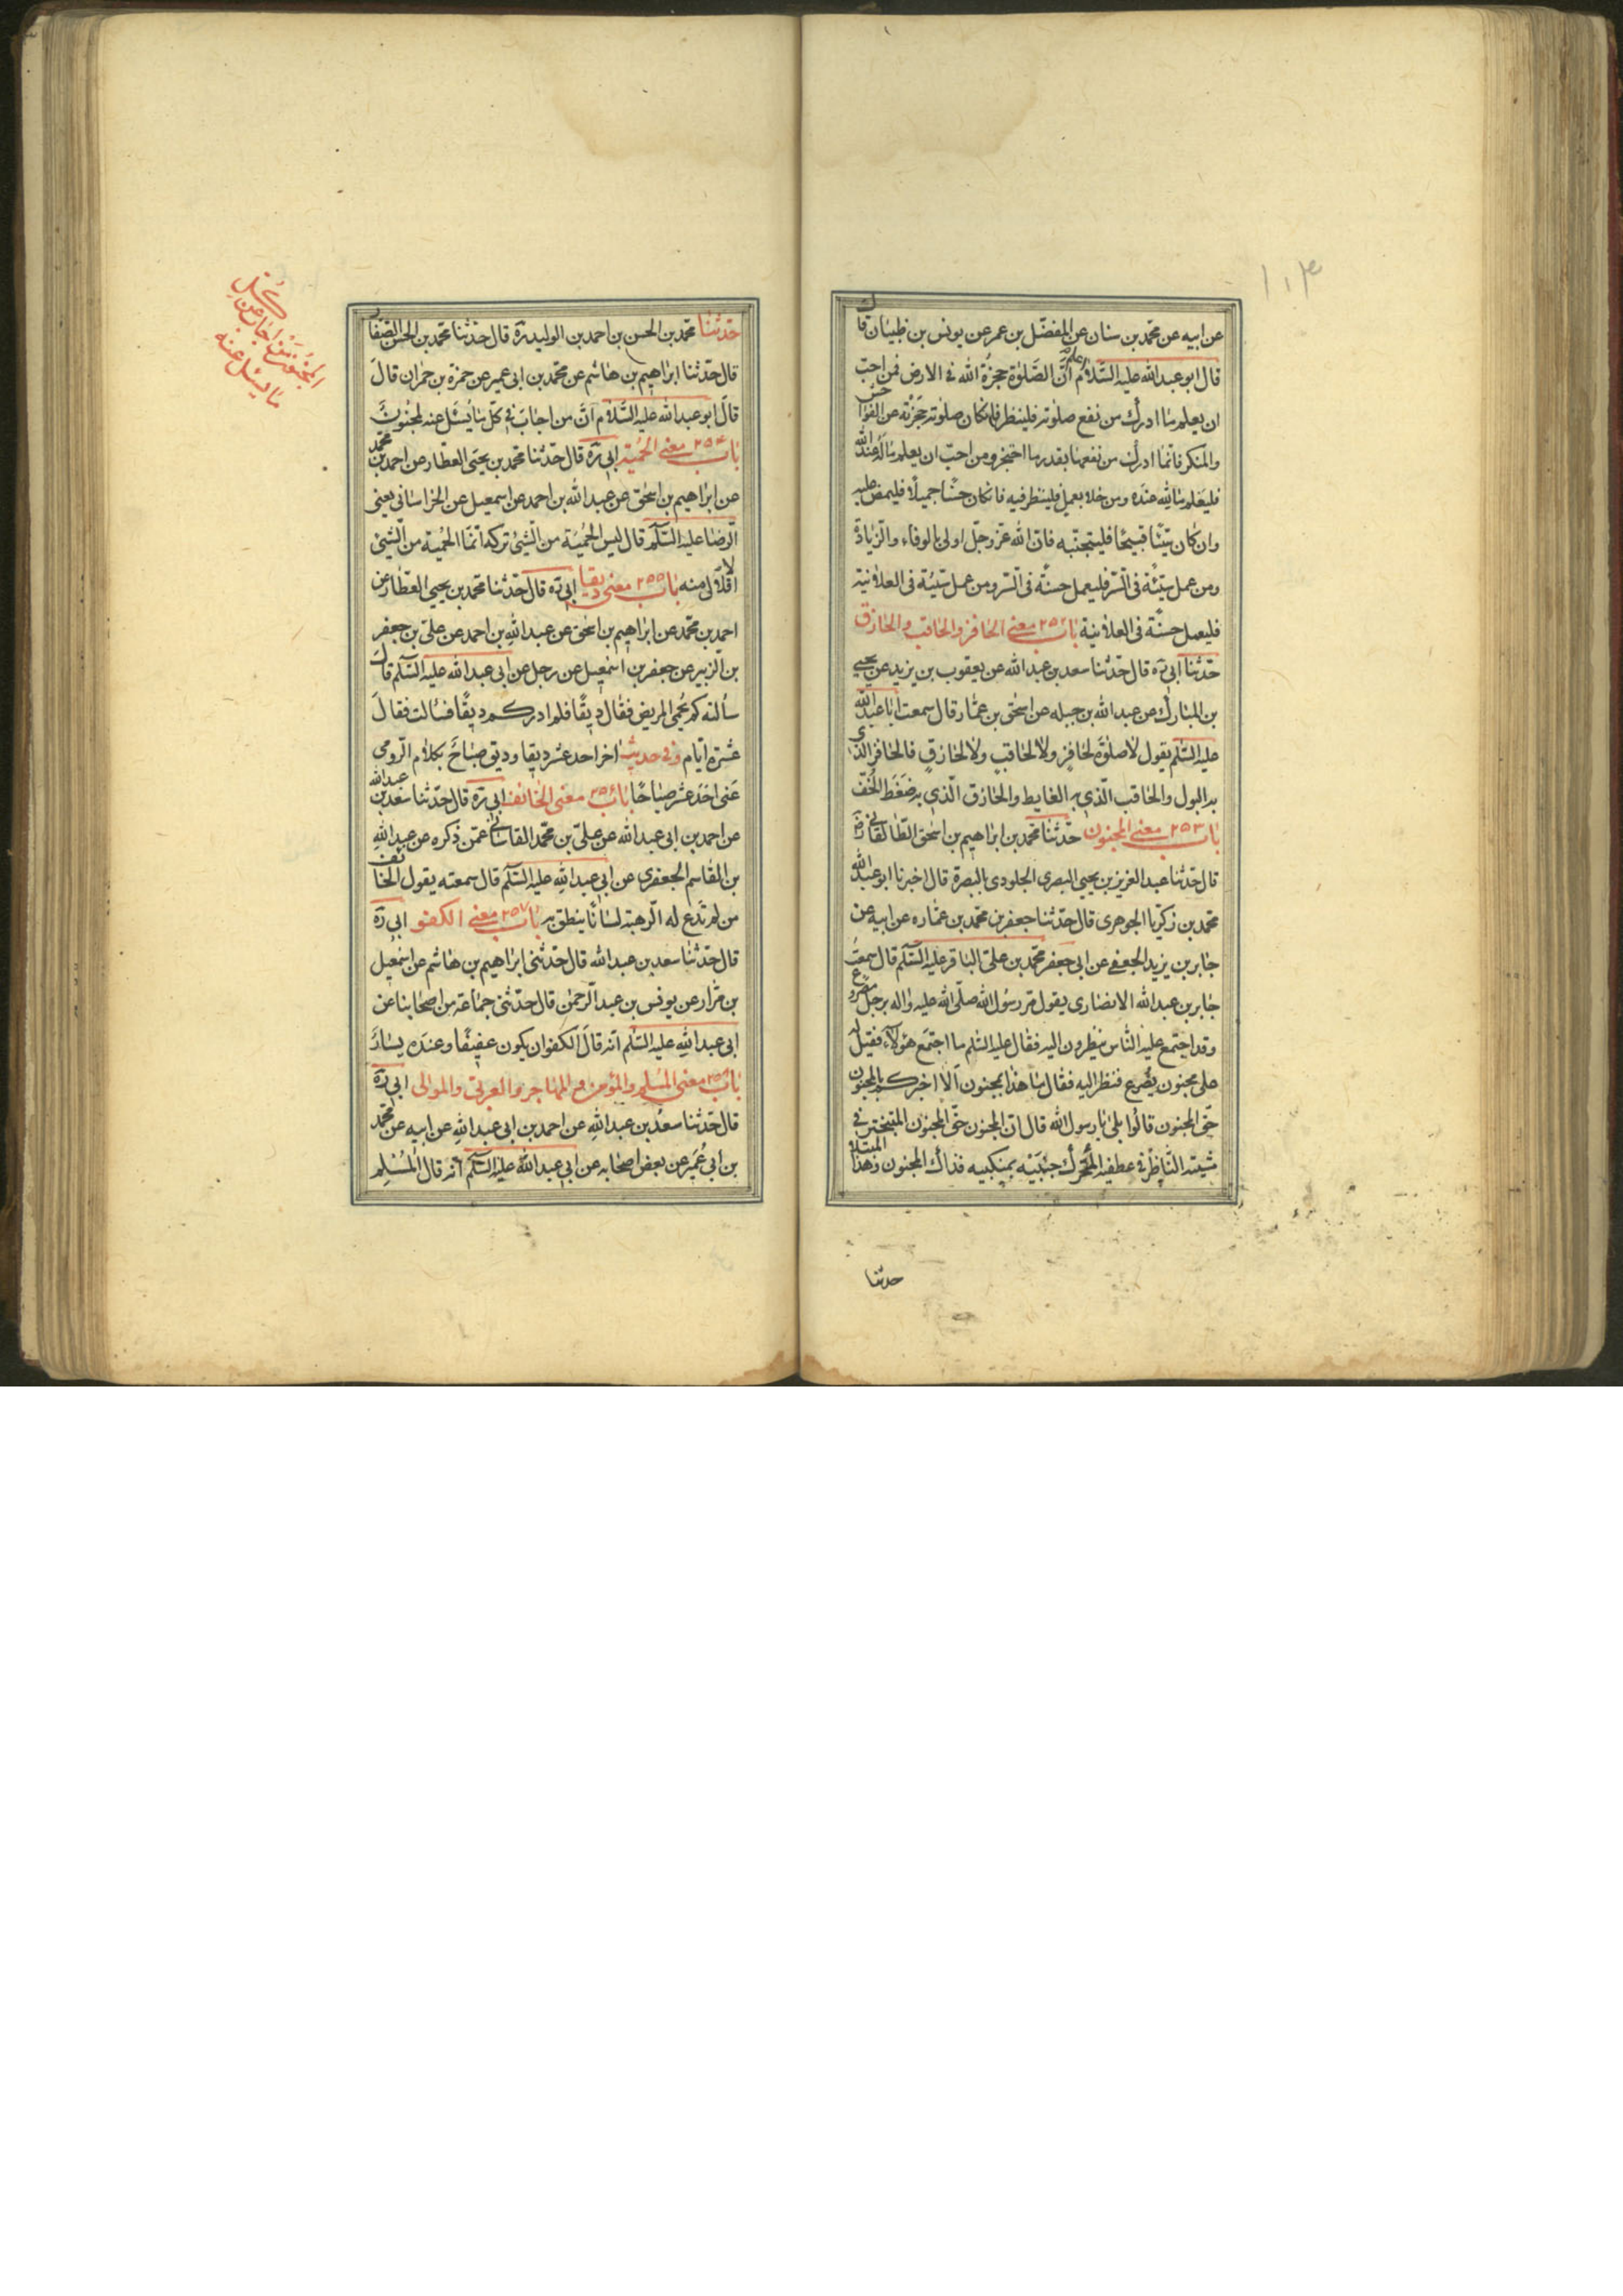 ١١٣
عن ابيه عن محمد بن سنان عن المفضّل بن عمر عن يونس بن ظبيان قال
قال ابو عبد الله عليه السّلام اعلم انّ الصّلوة حجزة الله فى الارض فمن احبّ
ان يعلم ما ادرك من نفع صلوته فلينظر فان كان صلوته حجزته عن الفواحش
والمنكر فانّما ادرك من نفعها بقدر ما احتجز ومن احبّ ان يعلم ماله عند الله
فليعلم ما لله عنده ومن خلا بعمل فلينظر فيه فان كان حسنًا جميلًا فليمض عليه
وان كان سيّئًا قبيحًا فليجتنبه فانّ الله عزّ وجلّ اولى بالوفاء والزّيادة
ومن عمل سيّئة فى السّر فليعمل حسنةً فى السّر ومن عمل سيّئة فى العلانية
فليعمل حسنة فى العلانية باب ٢٥٢ معنى الحافز والحاقب والحازق
حدّثنا ابى ره قال حدّثنا سعد بن عبد الله عن يعقوب بن يزيد عن يحيى
بن المبارك عن عبد الله بن جبله عن اسحق بن عمّار قال سمعت ابا عبد الله
عليه السّلم يقول لا صلوة لحافز ولا لحاقب ولا لحازق فالحافز الّذى
به البول والحاقب الّذى به الغايط والحازق الّذى به ضغط الخفّ
باب ٢٥٣ معنى المجنون حدّثنا محمد بن ابراهيم بن اسحق الطّالقانى رض
قال حدّثنا عبد العزيز بن يحيى البصرى الجلودى بالبصرة قال اخبرنا ابو عبد الله
محمد بن زكريّا الجوهرى قال حدّثنا جعفر بن محمد بن عمّاره عن ابيه عن
جابر بن يزيد الجعفى عن ابى جعفر محمد بن على الباقر عليه السّلم قال سمعت
جابر بن عبد الله الانصارى يقول مرّ رسول الله صلّى الله عليه واله برجل مصروع
وقد اجتمع عليه النّاس ينظرون اليه فقال عليه السّلم ما اجتمع هؤلاء فقيل له
على مجنون يصرع فنظر اليه فقال ما هذا بمجنون الا اخبركم بالمجنون
حقّ المجنون قالوا بلى يا رسول الله قال انّ المجنون حقّ المجنون المتبختر فى
مشيته النّاظر فى عطفيه المحرّك جنبيه بمنكبيه فذاك المجنون وهذا المبتلا
حدثنا
حدّثنا محمد بن الحسن بن احمد بن الوليد ره قال حدّثنا محمد بن الحسن الصّفار
قال حدّثنا ابراهيم بن هاشم عن محمد بن ابى عمير عن حمزة بن حمران قال
قال ابو عبد الله عليه السّلام انّ من اجاب فى كلّ ما يسئل عنه لمجنون
باب ٢٥٤ معنى الحمية ابى ره قال حدّثنا محمد بن يحيى العطار عن احمد بن محمد
عن ابراهيم بن اسحق عن عبد الله بن احمد عن اسمعيل عن الخراسانى يعنى
الرّضا عليه السّلم قال ليس الحمية من الشّىء تركه انّما الحمية من الشّىء
الاقلال منه باب ٢٥٥ معنى دبقا ابى ره قال حدّثنا محمد بن يحيى العطّار عن
احمد بن محمد عن ابراهيم بن اسحق عن عبد الله بن احمد عن علىّ بن جعفر
بن الزبير عن جعفر بن اسمعيل عن رجل عن ابى عبد الله عليه السّلم قال
سألته كم يحمى المريض فقال دبقًا فلم ادر كم دبقًا فسالت فقال
عشرة ايّام وفى حديث اخر احد عشر دبقا ودبق صباح بكلام الرّومى
عنى احد عشر صباحًا باب ٢٥٦ معنى الخائف ابى ره قال حدّثنا سعد بن عبد الله
عن احمد بن ابى عبد الله عن علىّ بن محمد القاسانى عمّن ذكره عن عبد الله
بن القاسم الجعفرى عن ابى عبد الله عليه السّلم قال سمعته يقول الخائف
من لم تدع له الرّهبة لسانًا ينطق به باب ٢٥٧ معنى الكفو ابى ره
قال حدّثنا سعد بن عبد الله قال حدّثنى ابراهيم بن هاشم عن اسمعيل
بن مرّار عن يونس بن عبد الرّحمن قال حدّثنى جماعة من اصحابنا عن
ابى عبد الله عليه السّلم انّه قال الكفو ان يكون عفيفًا وعنده يسار
باب ٢٥٨ معنى المسلم والمؤمن و المهاجر والعربىّ والموالى ابى ره
قال حدّثنا سعد بن عبد الله عن احمد بن ابى عبد الله عن ابيه عن محمد
بن ابى عمير عن بعض اصحابه عن ابى عبد الله عليه السّلم انّه قال المسلم
المجنون من اجاب عن كل
ما يسئل عنه